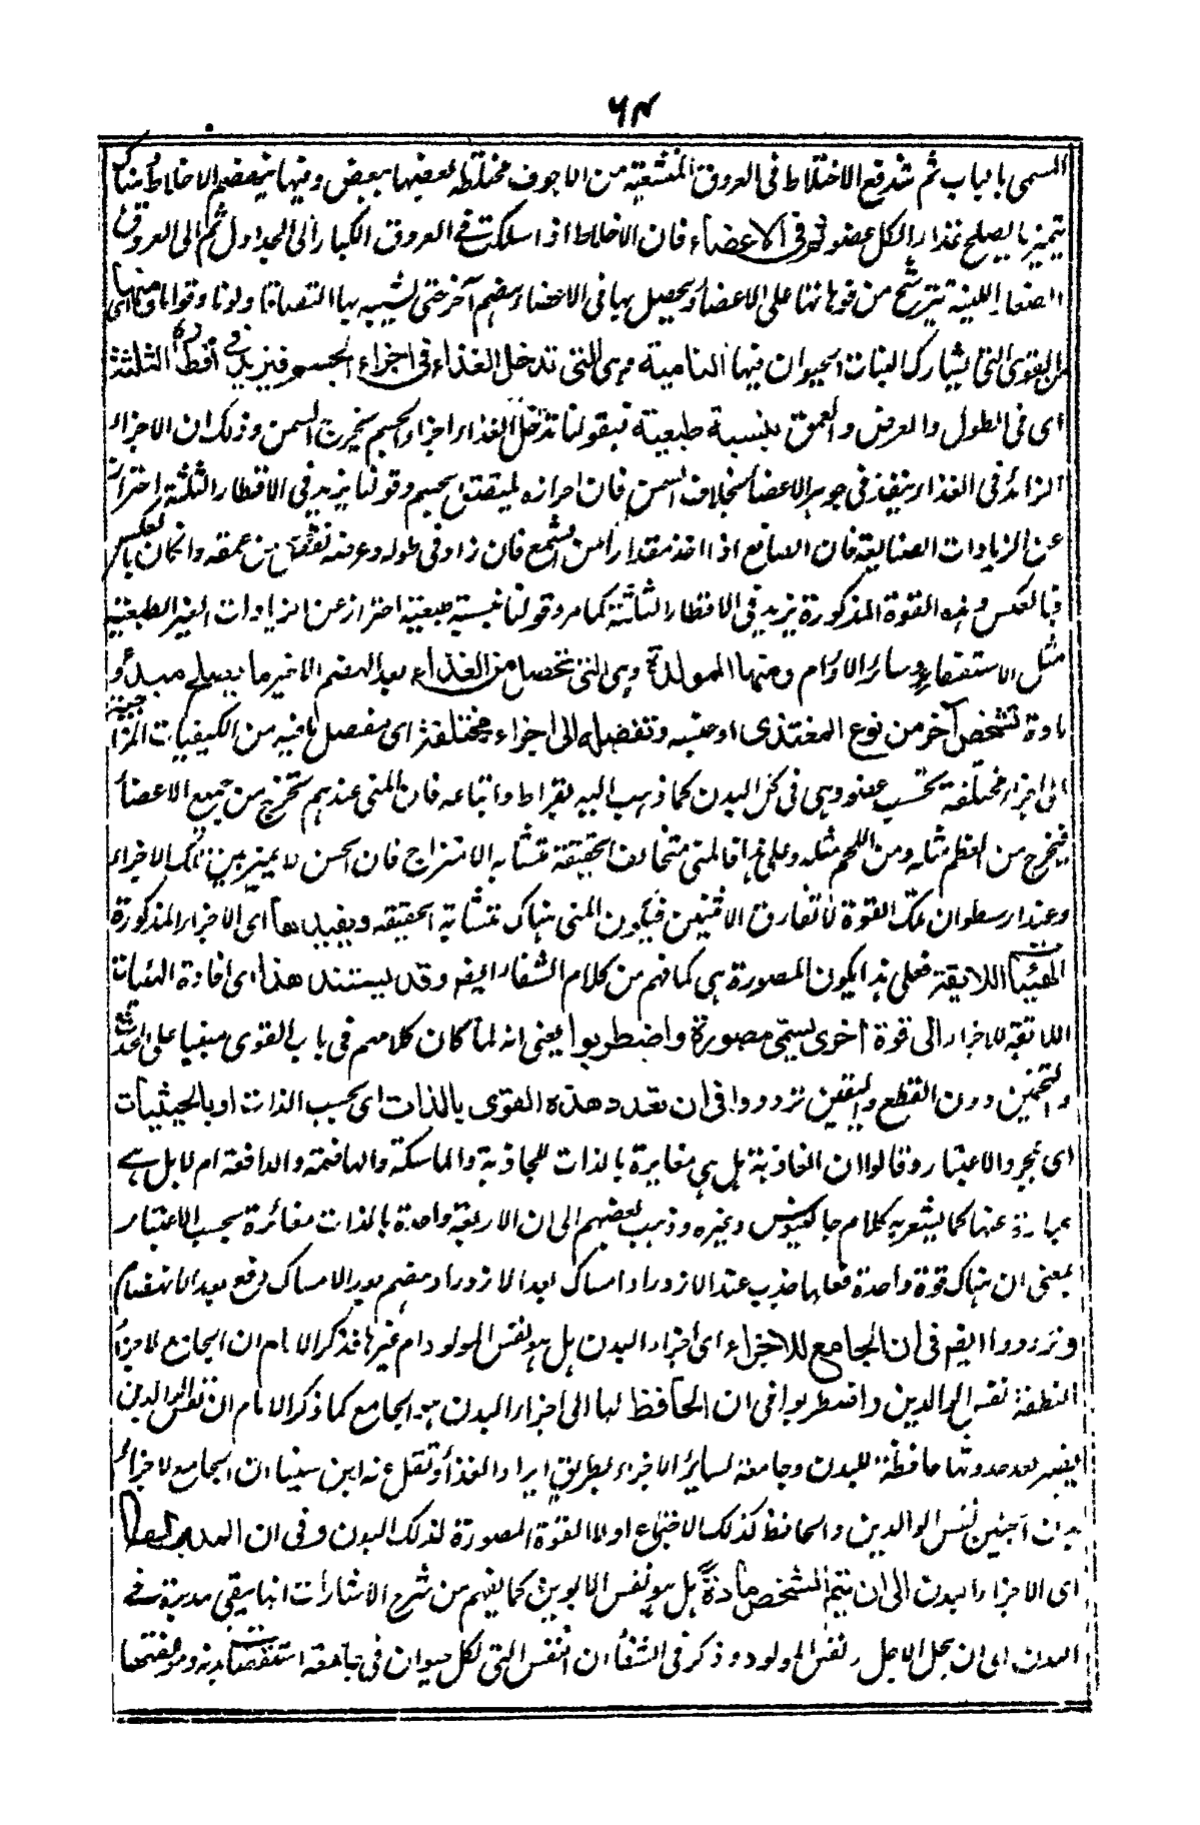 ٦٤
المسمى بالباب ثم تندفع الاخلاط فى العروق المنشعبة من الاجوف مختلطة بعضها ببعض وفيها ينهضم الاخلاط هناك
يتميز ما يصلح غذاء لكل عضو ثم فى الاعضاء فان الاخلاط اذا سلكت فى العروق الكبار الى الجداول ثم الى العروق
الصغار الليفية يترشح من فوهاتها على الاعضاء ويحصل لها فى الاعضاء هضم آخر حتى تشبيه بها التصاقا ولونا وقواما ومنها اى
من القوى التى يشارك النبات الحيوان فيها النامية وهى التى تدخل الغذاء فى اجزاء الجسم فيزيد فى اقطاره الثلثة
اى فى الطول والعرض والعمق بنسبة طبيعية فبقولنا تدخل الغذاء اجزاء الجسم يخرج السمن وذلك ان الاجزاء
الزائد فى الغذاء ينفذ فى جوهر الاعضاء بخلاف السمن فان اجزاءه يلتصق بجسم وقولنا يزيد فى الاقطار الثلثة احتراز
عن الزيادات الصناعية فان الصانع اذا اخذ مقدارا من الشمع فان زاد فى طوله وعرضه نقص من عمقه وان كان بالعكس
فبالعكس وهذه القوة المذكورة يزيد فى الاقطار الثلثة كما مر وقولنا بنسبة طبيعية احتراز عن الزيادات الغير الطبعية
مثل الاستسقاء وسائر الاورام ومنها المولدة وهى التى تحصل من الغذاء بعد الهضم الاخير ما يصلح مبدأ و
مادة لشخص آخر من نوع المغتذى او جنسه وتفصله الى اجزاء مختلفة اى مفصل ما فيه من الكيفيات المزاجية
الى اجزاء مختلفة بحسب عضو وهى فى كل البدن كما ذهب اليه بقراط واتباعه فان المنى عندهم يخرج من جميع الاعضاء
فيخرج من العظم مثله ومن اللحم مثله وعلى هذا فالمنى متخالف الحقيقة متشابه الامتزاج فان الحس لا يميز بين تلك الاجزاء
وعند ارسطو ان تلك القوة لا تفارق الانثيين فيكون المنى هناك متشابه الحقيقة ويفيدها اى الاجزاء المذكورة
الهيئات اللايقة فعلى هذا يكون المصورة هى كما فهم من كلام الشفاء ايضا وقد يستند هذا اى افادة الهيئات
اللائقة للاجزاء الى قوة اخرى يسمى مصورة واضطربوا يعنى انه لما كان كلامهم فى باب القوى مبنيا على الحدس
والتخمين دون القطع واليقين ترددوا فى ان تعدد هذه القوى بالذات اى بحسب الذات او بالحيثيات
اى بمجرد الاعتبار وقالوا ان الغاذية هل هى مغايرة بالذات للجاذبة والماسكة والهاضمة والدافعة ام لا بل هى
عبارة عنها كما يشعر به كلام جالينوس وغيره وذهب بعضهم الى ان الاربعة واحدة بالذات مغائرة بحسب الاعتبار
بمعنى ان هناك قوة واحدة فعلها جذب عند الازدراد وامساك بعد الازدراد وهضم بعد الامساك ودفع بعد الانهضام
وترددوا ايضا فى ان الجامع للاجزاء اى اجزاء البدن هل هو نفس المولود ام غيرها فذكر الامام ان الجامع لاجزاء
النطفة نفس الوالدين واضطربوا فى ان الحافظ لها الى اجزاء البدن هو الجامع كما ذكر الامام ان نفس الوالدين
يصير بعد حدوثها حافظة للبدن وجامعة لسائر الاجزاء بطريق ايراد الغذاء ونقل عنه ابن سينا ان الجامع لاجزاء
بدن الجنين نفس الوالدين والحافظ كذلك الاجتماع اولا القوة المصورة لذلك البدن وفى ان المدبر لها
اى الاجزاء البدن الى ان يتم الشخص ماذة هل هو نفس الابوين كما يفهم من شرح الاشارات انها يبقى مدبرة فى
البدن الى ان يحل الاجل نفس المولود وذكر فى الشفاء ان النفس التى لكل حيوان فى جامعة استقصات بدنه ومؤلفتها